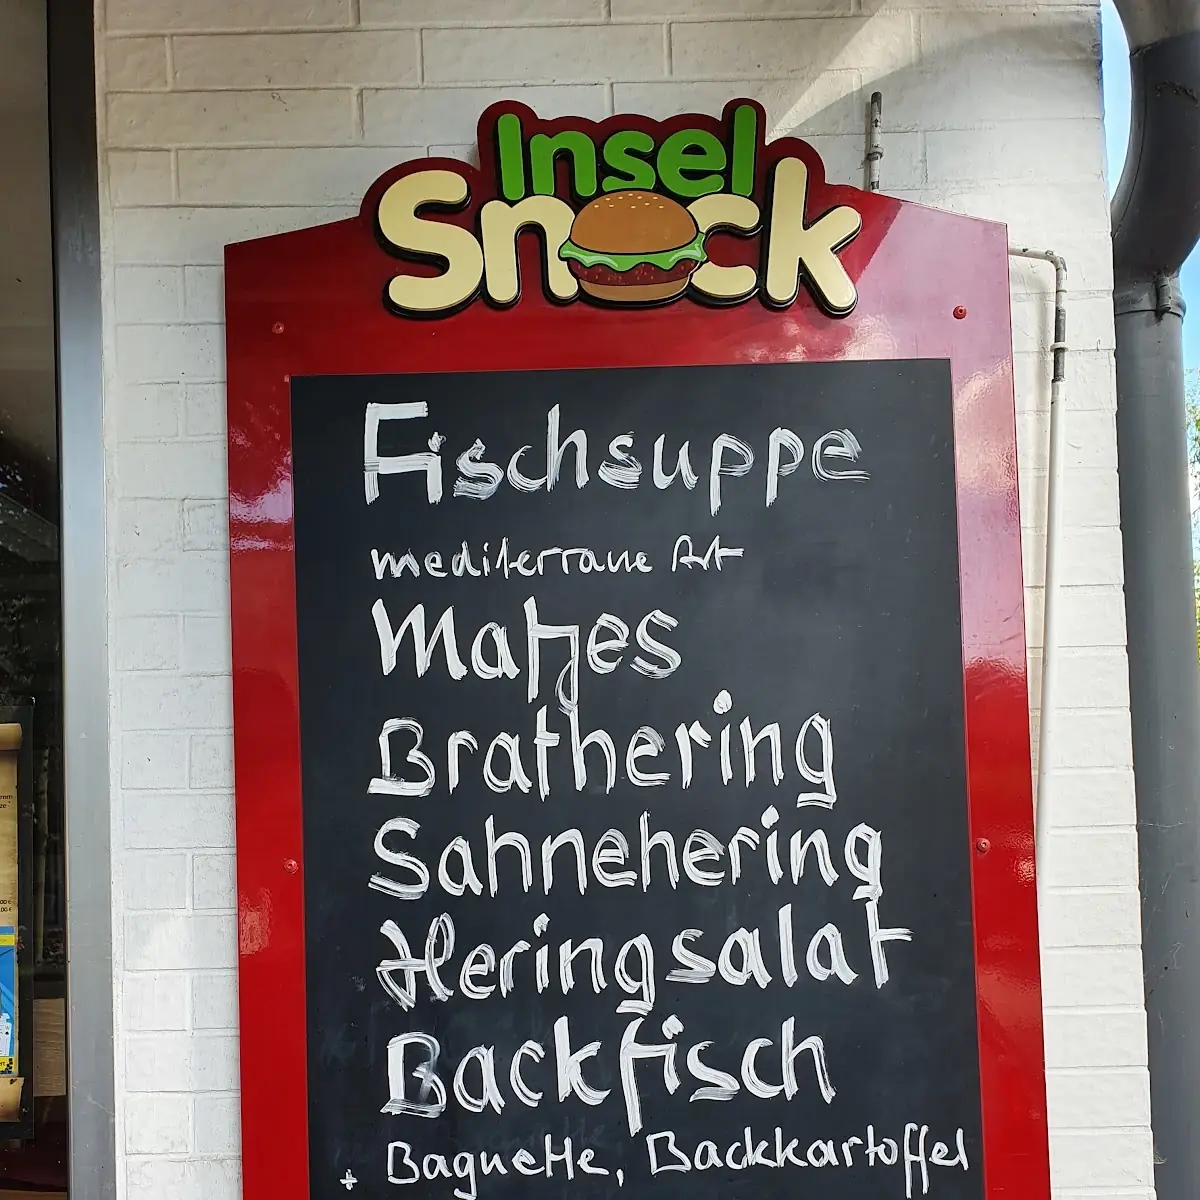 Insel
Snack
Fischsuppe
mediterrane Art
Matjes
Brathering
Sahnehering
Heringsalat
Backfisch
+ Baguette, Backkartoffel